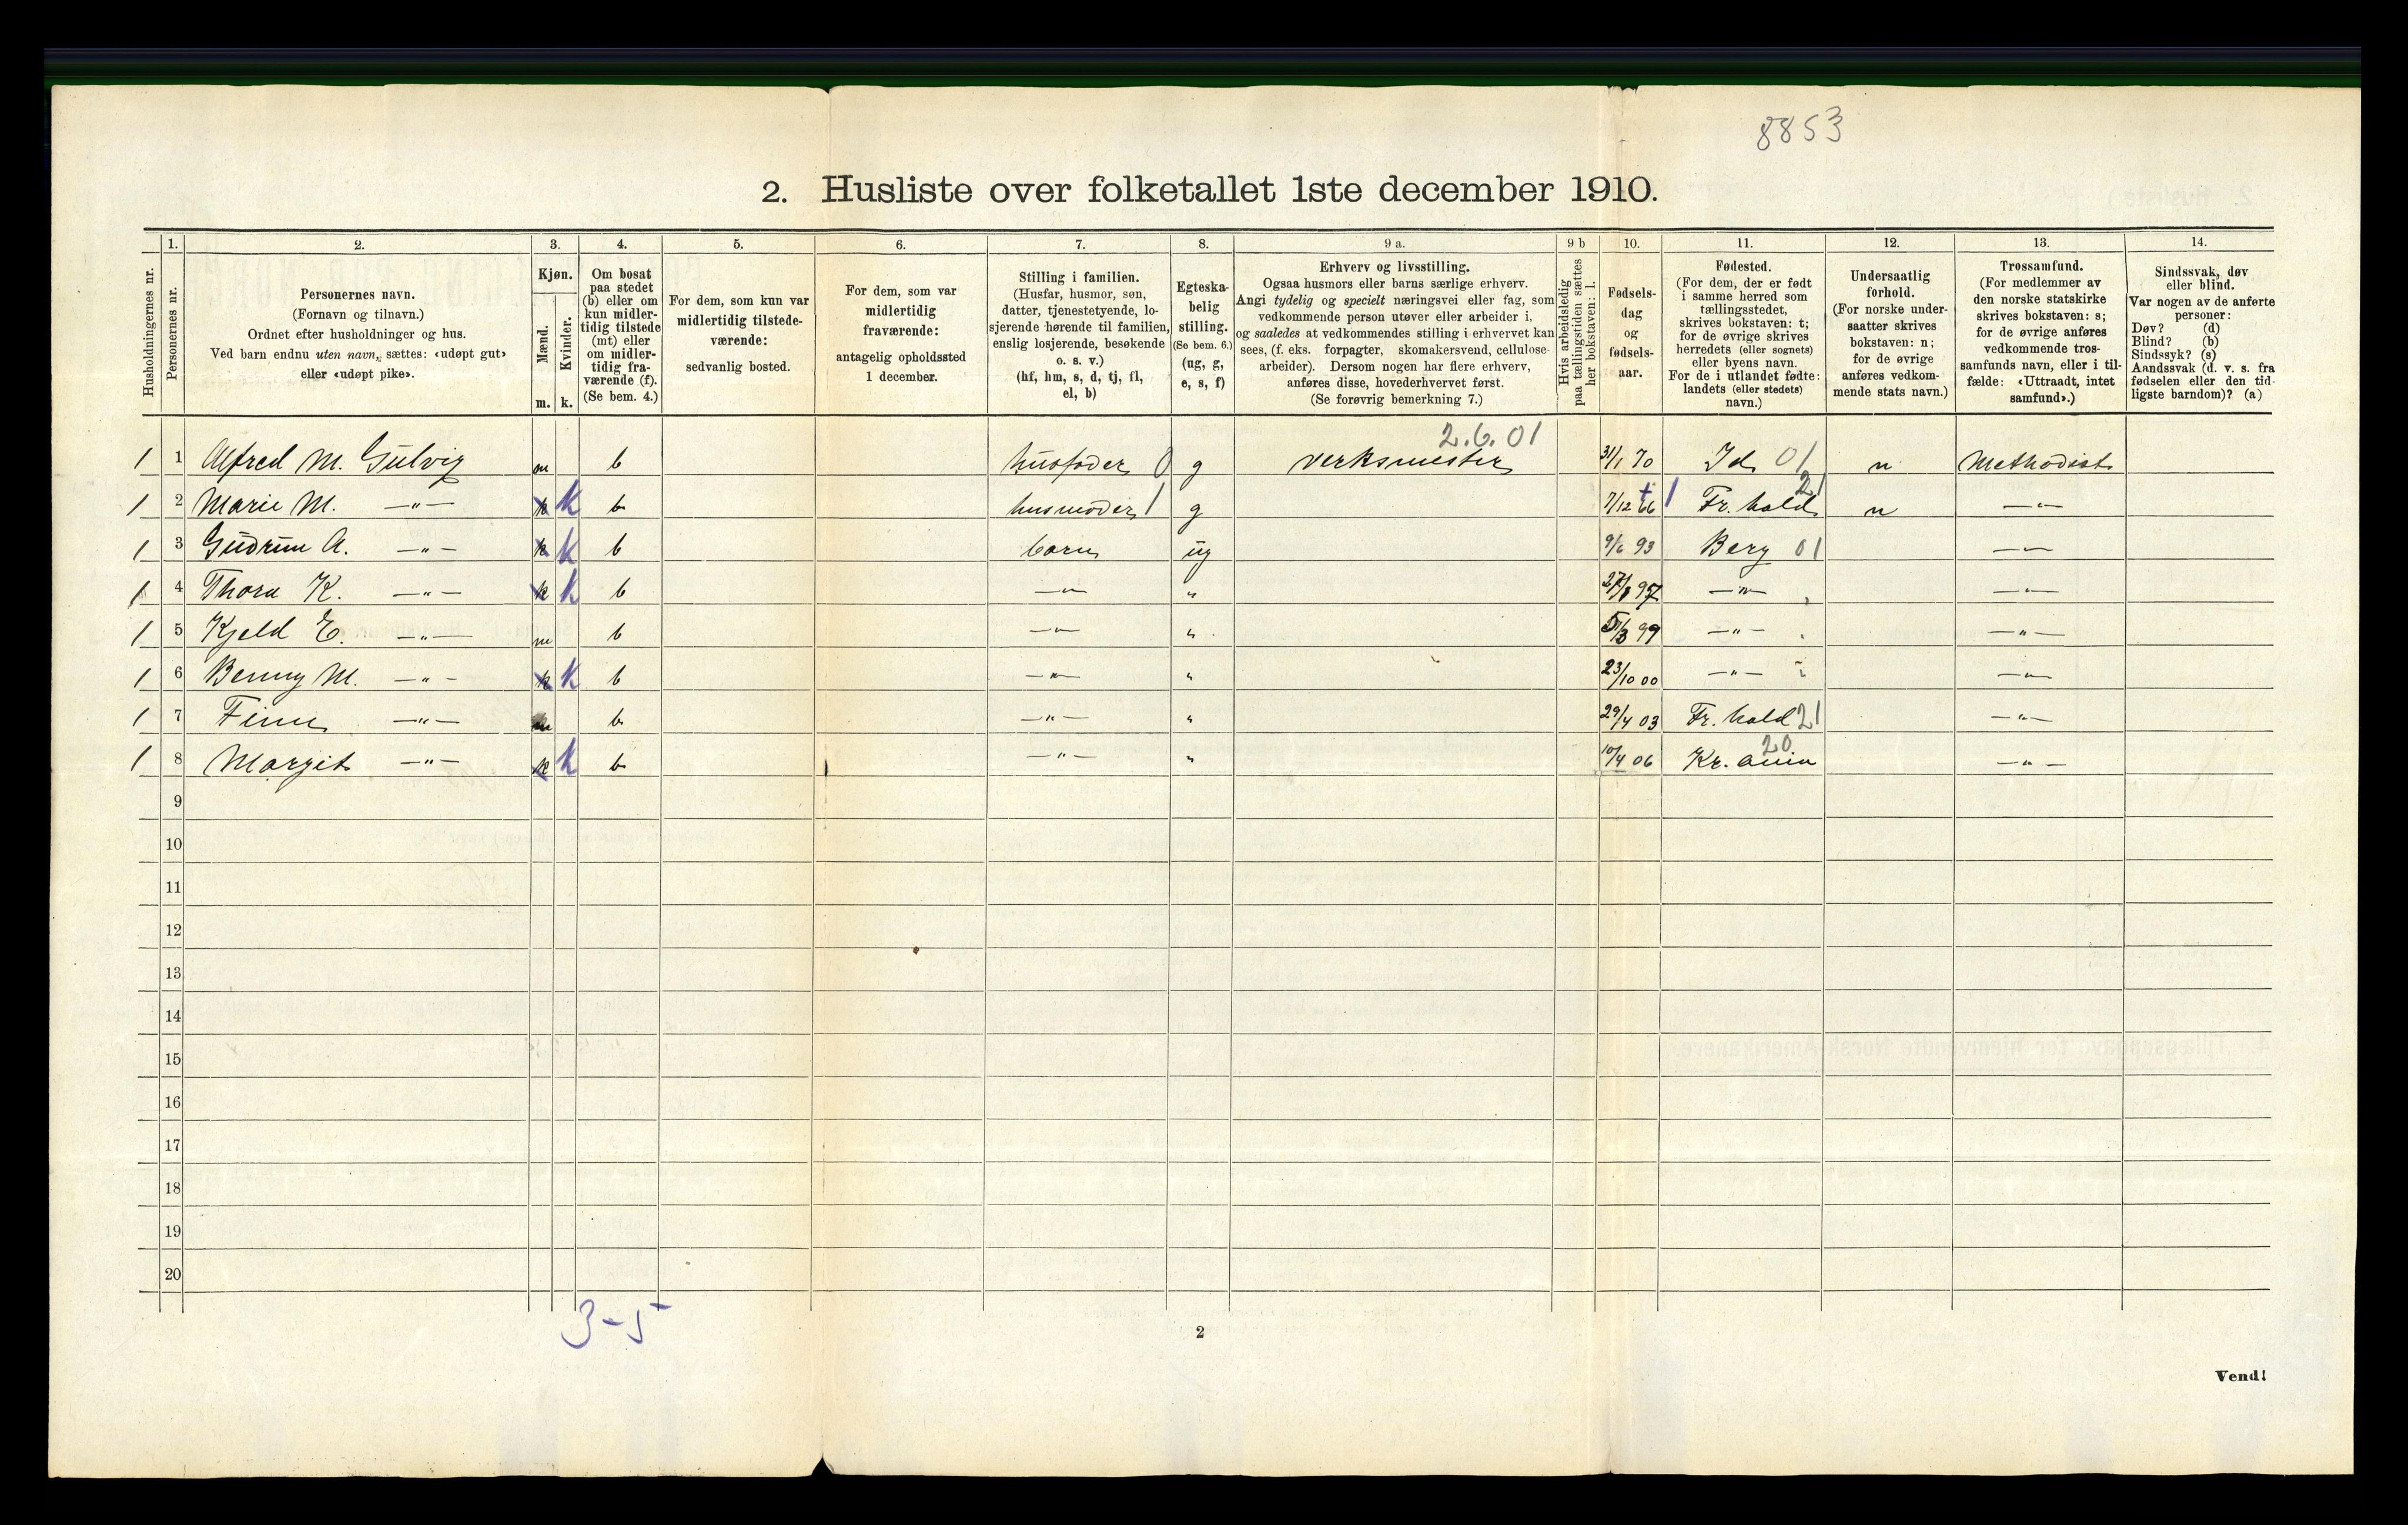 8853
2. Husliste over folketallet 1ste december 1910.
Husholdningernes nr.
1.
Personernes nr.
2.
Personernes navn.
(Fornavn og tilnavn.)
Ordnet efter husholdninger og hus.
Ved barn endnu uten navn, sættes: «udøpt gut»
eller «udøpt pike».
3.
Kjøn.
Mænd.
Kvinder.
m. k.
4.
Om bosat
paa stedet
(b) eller om
kun midler-
tidig tilstede
(mt) eller
om midler-
tidig fra-
værende (f).
(Se bem. 4.)
5.
For dem, som kun var
midlertidig tilstede-
værende:
sedvanlig bosted.
6.
For dem, som var
midlertidig
fraværende:
antagelig opholdssted
1 december.
7.
Stilling i familien.
(Husfar, husmor, søn,
datter, tjenestetyende, lo-
sjerende hørende til familien,
enslig losjerende, besøkende
o. s. v.)
(hf, hm, s, d, tj, fl,
el, b)
8.
Egteska-
belig
stilling.
(Se bem. 6.)
(ug, g,
e, s, f)
9 a.
Erhverv og livsstilling.
Ogsaa husmors eller barns særlige erhverv.
Angi tydelig og specielt næringsvei eller fag, som
vedkommende person utøver eller arbeider i,
og saaledes at vedkommendes stilling i erhvervet kan
sees, (f. eks. forpagter, skomakersvend, cellulose-
arbeider). Dersom nogen har flere erhverv,
anføres disse, hovederhvervet først.
(Se forøvrig bemerkning 7.)
9 b
Hvis arbeidsledig
paa tællingstiden sættes
her bokstaven: l.
10.
Fødsels-
dag
og
fødsels-
aar.
11.
Fødested.
(For dem, der er født
i samme herred som
tællingsstedet,
skrives bokstaven: t;
for de øvrige skrives
herredets (eller sognets)
eller byens navn.
For de i utlandet fødte:
landets (eller stedets)
navn.)
12.
Undersaatlig
forhold.
(For norske under-
saatter skrives
bokstaven: n;
for de øvrige
anføres vedkom-
mende stats navn.)
13.
Trossamfund.
(For medlemmer av
den norske statskirke
skrives bokstaven: s;
for de øvrige anføres
vedkommende tros-
samfunds navn, eller i til-
fælde: «Uttraadt, intet
samfund».)
14.
Sindssvak, døv
eller blind.
Var nogen av de anførte
personer:
Døv? (d)
Blind? (b)
Sindssyk? (s)
Aandssvak (d. v. s. fra
fødselen eller den tid-
ligste barndom)? (a)
2.6.01
1 1 Alfred M. Gulvig m b husfader 0 g verksmester 31/1 70 Id 01 n Methodist
1 2 Marie M. -"- k k b husmoder 1 g 7/12 66 + 1 Fr. hald 21 n -"-
1 3 Gudrun A. -"- k k b barn ug 9/6 93 Berg 01 -"-
1 4 Thora K. -"- k k b -"- " 27/8 97 -"- -"-
1 5 Kjeld E. -"- m b -"- " 5/3 99 -"- -"-
1 6 Benny M. -"- k k b -"- " 23/10 00 -"- -"-
1 7 Finn -"- m b -"- " 29/4 03 Fr. hald 21 -"-
1 8 Margit -"- k k b -"- " 10/4 06 Kr. ania 20 -"-
9
10
11
12
13
14
15
16
17
18
19
20
3-5
2
Vend!